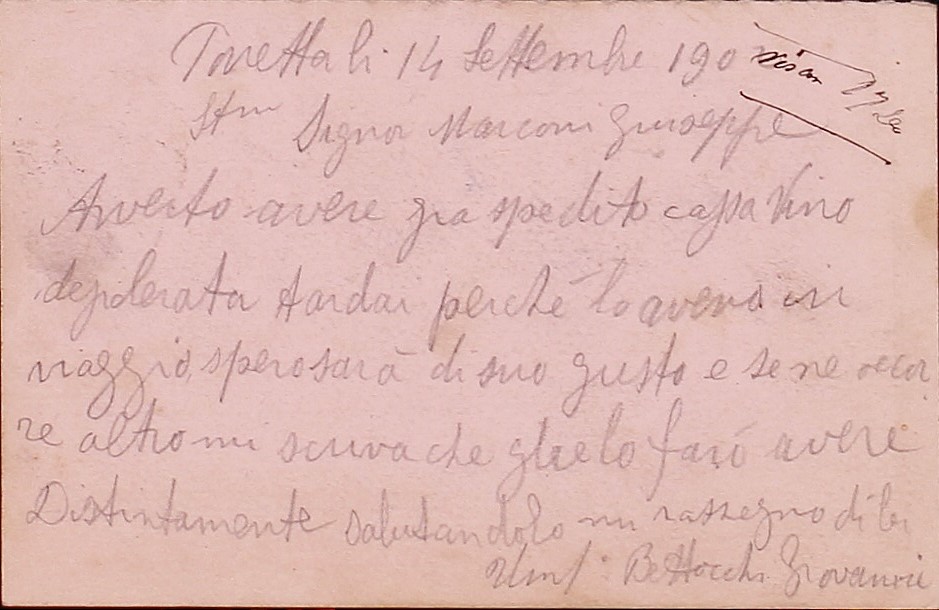 Torretta li 14 Settembre 190
Stm
Signor Marconi Giuseppe
Averto avere gia spedito cassa Vino
desiderata tardai perché lo avevo in
viaggio, spero sarà di suo gusto e se ne occor
re altro mi scriva che glielo farò avere
Distintamente salutandolo mi rassegno di lei
Umi: Bettocchi Giovanni